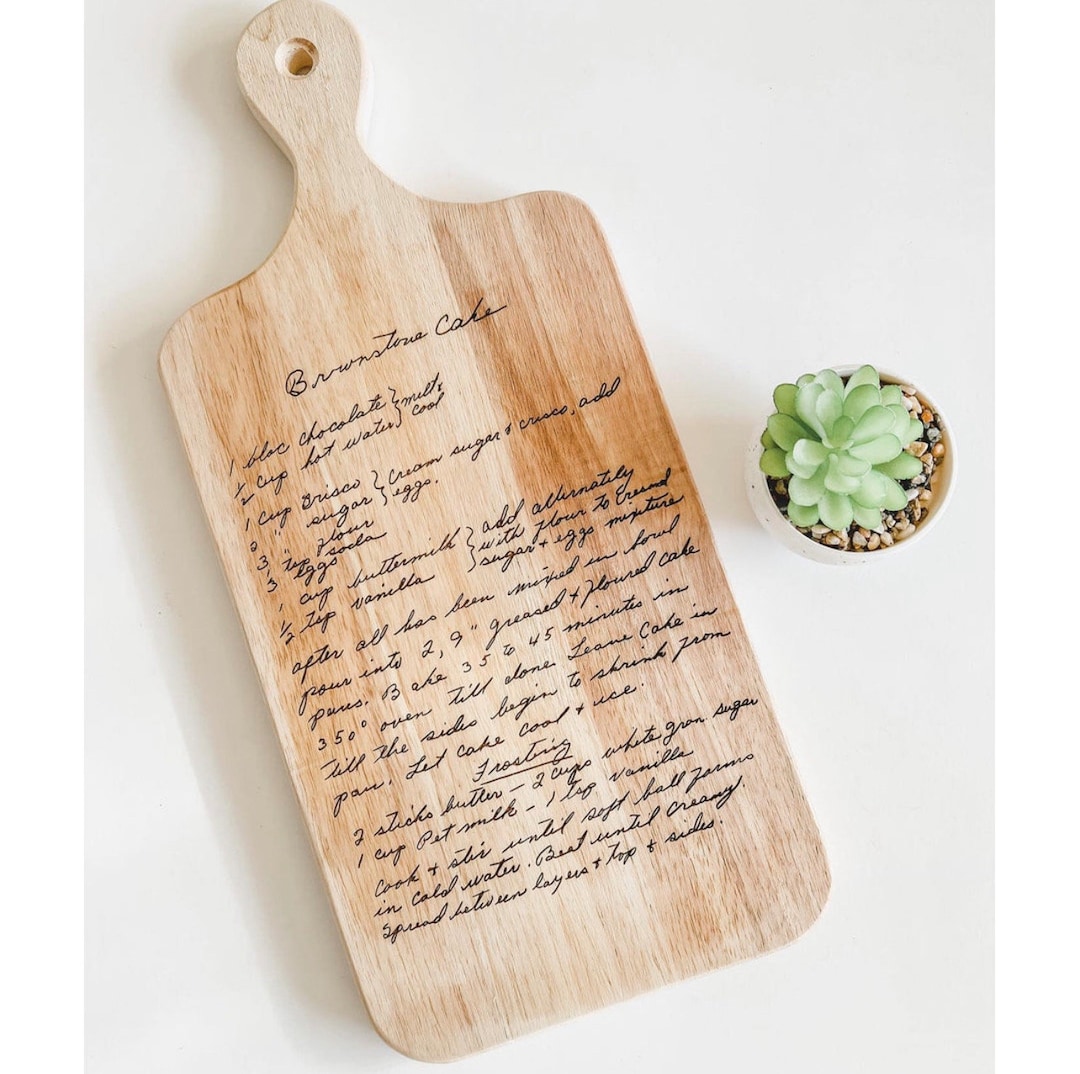 Brownstone Cake
1 bloc chocolate } melt &
1/2 cup hot water } cool
1 cup Crisco } Cream sugar & crisco, add
2 " sugar } eggs.
3 " flour
1 tsp soda
3 eggs
1 cup buttermilk } add alternately
1/2 tsp vanilla } with flour to creamed
sugar & eggs mixture
after all has been mixed in bowl
pour into 2, 9" greased & floured cake
pans. Bake 35 to 45 minutes in
350° oven till done. Leave Cake in
till the sides begin to shrink from
pan. Let cake cool & ice.
Frosting
2 sticks butter - 2 cups white gran. sugar
1 cup Pet milk - 1 tsp vanilla
Cook & stir until soft ball forms
in Cold water. Beat until creamy.
Spread between layers & top & sides.